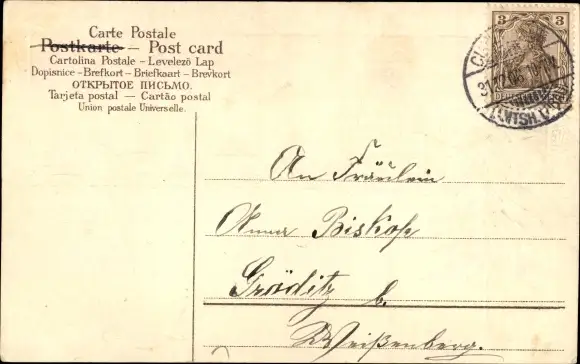 Carte Postale
Postkarte — Post card
Cartolina Postale – Levelező Lap
Dopisnice – Brefkort – Briefkaart – Brevkort
ОТКРЫТОЕ ПИСЬМО.
Tarjeta postal — Cartão postal
Union postale Universelle.
3 3
An Fräulein
Anna Biskop
Gröditz b.
Weißenberg.